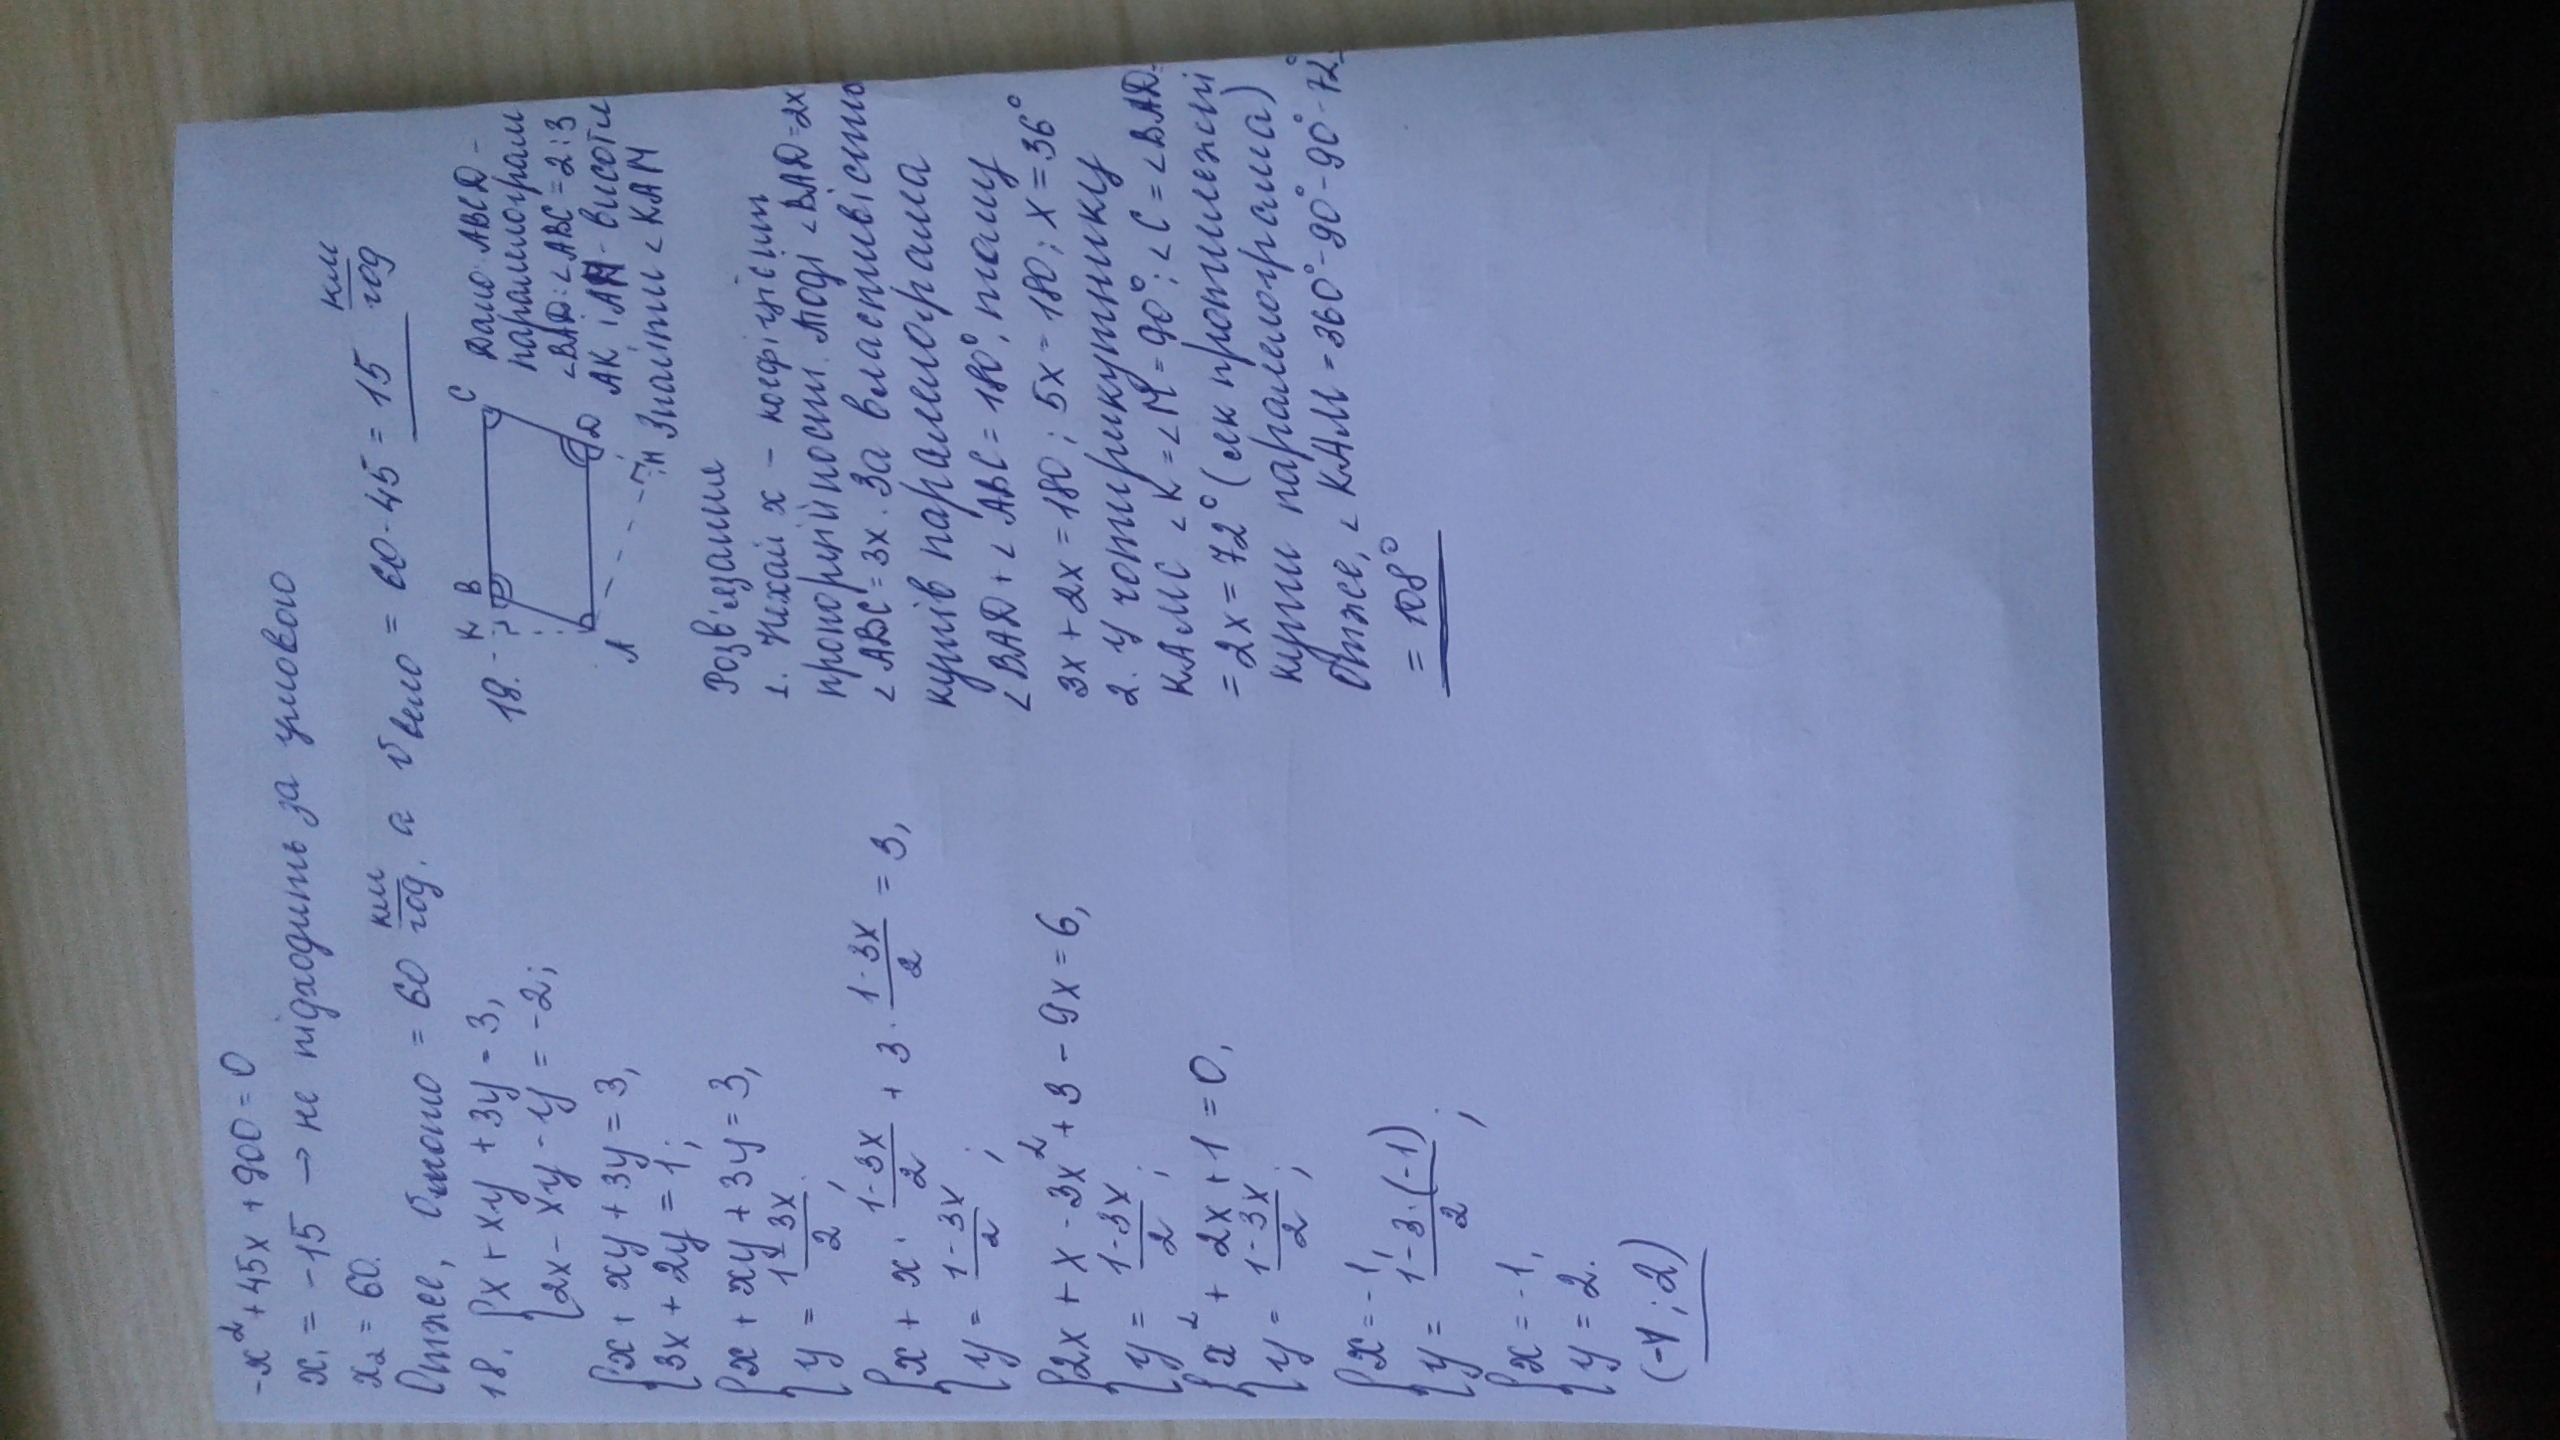 -x² + 45x + 900 = 0
x₁ = -15 → не підходить за умовою
x₂ = 60.
Отже, vмото = 60 км/год, а vвело = 60 - 45 = 15 км/год
18. { x + xy + 3y = 3,
2x - xy - y = -2;
{ x + xy + 3y = 3,
3x + 2y = 1;
{ x + xy + 3y = 3,
y = (1-3x)/2;
{ x + x · (1-3x)/2 + 3 · (1-3x)/2 = 3,
y = (1-3x)/2;
{ 2x + x - 3x² + 3 - 9x = 6,
y = (1-3x)/2;
{ x² + 2x + 1 = 0,
y = (1-3x)/2;
{ x = -1,
y = (1-3·(-1))/2;
{ x = -1,
y = 2.
(-1; 2)
18.
K B C
A D M
Дано: ABCD -
паралелограм
∠BAD:∠ABC = 2:3
AK і AM - висоти
Знайти ∠KAM
Розв'язання
1. Нехай x - коефіцієнт
пропорційності. Тоді ∠BAD = 2x
∠ABC = 3x. За властивістю
кутів паралелограма
∠BAD + ∠ABC = 180°, тому
3x + 2x = 180; 5x = 180; x = 36°
2. У чотирикутнику
KAMC ∠K = ∠M = 90°; ∠C = ∠BAD =
= 2x = 72° (як протилежні
кути паралелограма)
Отже, ∠KAM = 360° - 90° - 90° - 72° =
= 108°